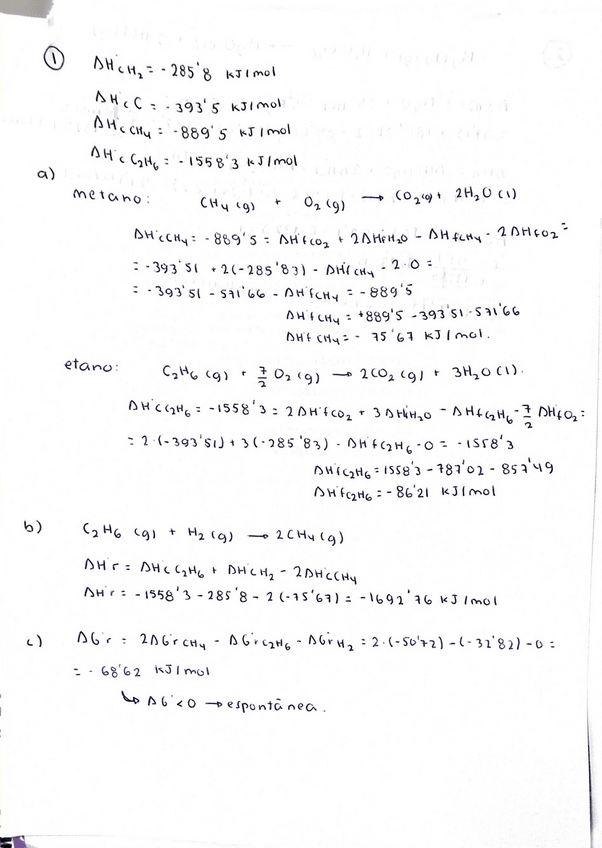 ①
ΔH°c H₂ = - 285'8 KJ/mol
ΔH°c C = - 393'5 KJ/mol
ΔH°c CH₄ = - 889'5 KJ/mol
ΔH°c C₂H₆ = - 1558'3 KJ/mol
a)
metano: CH₄ (g) + O₂ (g) → CO₂ (g) + 2H₂O (l)
ΔH°c CH₄ = - 889'5 = ΔH°f CO₂ + 2ΔH°f H₂O - ΔH°f CH₄ - 2ΔH°f O₂ =
= - 393'51 + 2(-285'83) - ΔH°f CH₄ - 2·0 =
= - 393'51 - 571'66 - ΔH°f CH₄ = - 889'5
ΔH°f CH₄ = +889'5 - 393'51 - 571'66
ΔH°f CH₄ = - 75'67 KJ/mol.
etano: C₂H₆ (g) + 7/2 O₂ (g) → 2CO₂ (g) + 3H₂O (l).
ΔH°c C₂H₆ = - 1558'3 = 2ΔH°f CO₂ + 3ΔH°f H₂O - ΔH°f C₂H₆ - 7/2 ΔH°f O₂ =
= 2·(-393'51) + 3(-285'83) - ΔH°f C₂H₆ - 0 = - 1558'3
ΔH°f C₂H₆ = 1558'3 - 787'02 - 857'49
ΔH°f C₂H₆ = - 86'21 KJ/mol
b) C₂H₆ (g) + H₂ (g) → 2CH₄ (g)
ΔH°r = ΔH°c C₂H₆ + ΔH°c H₂ - 2ΔH°c CH₄
ΔH°r = - 1558'3 - 285'8 - 2(-75'67) = - 1692'76 KJ/mol
c) ΔG°r = 2ΔG°r CH₄ - ΔG°r C₂H₆ - ΔG°r H₂ = 2·(-50'72) - (-32'82) - 0 =
= - 68'62 KJ/mol
↳ ΔG°<0 → espontánea.